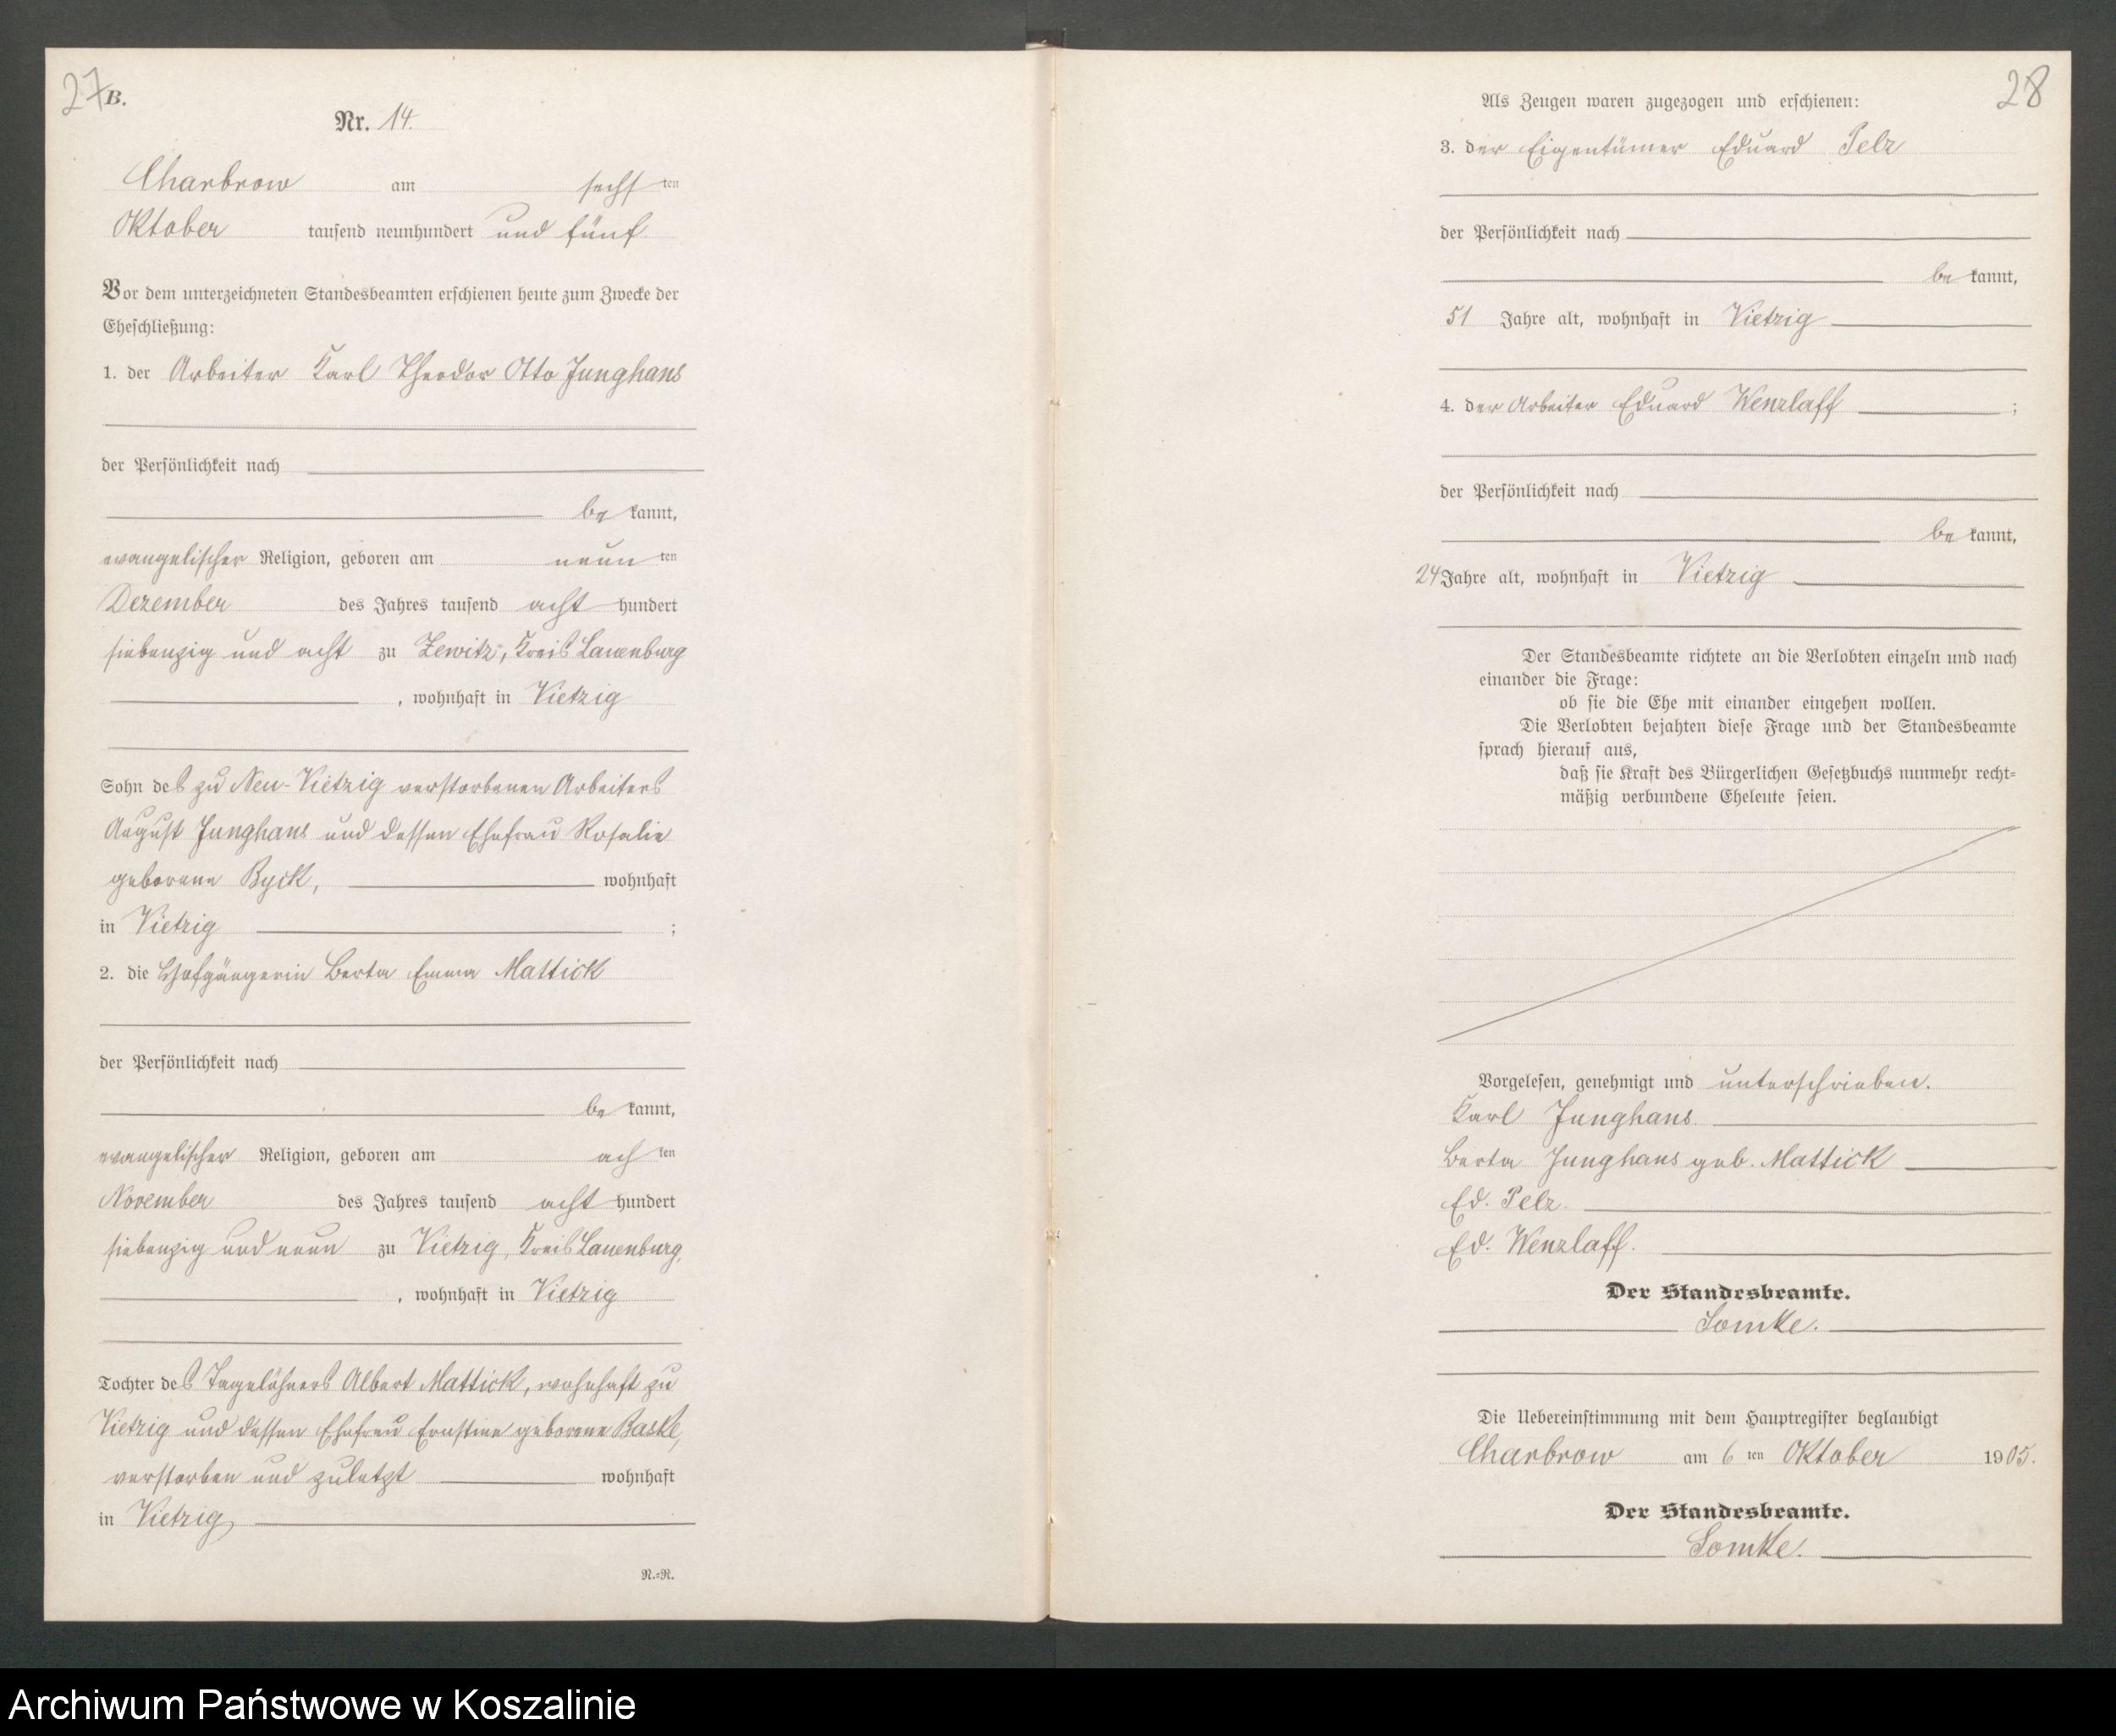 27
B.
Nr. 14.
Charbrow am sechsten
Oktober tausend neunhundert und fünf
Vor dem unterzeichneten Standesbeamten erschienen heute zum Zwecke der
Eheschließung:
1. der Arbeiter Karl Theodor Otto Junghans
der Persönlichkeit nach
be kannt,
evangelischer Religion, geboren am neun ten
Dezember des Jahres tausend acht hundert
siebenzig und acht zu Zewitz, Kreis Lauenburg
, wohnhaft in Vietzig
Sohn des zu Neu-Vietzig verstorbenen Arbeiters
August Junghans und dessen Ehefrau Rosalie
geborene Byck, wohnhaft
in Vietzig ;
2. die Hofgängerin Berta Emma Mattick
der Persönlichkeit nach
be kannt,
evangelischer Religion, geboren am ach ten
November des Jahres tausend acht hundert
siebenzig und neun zu Vietzig, Kreis Lauenburg,
, wohnhaft in Vietzig
Tochter des Tagelöhners Albert Mattick, wohnhaft zu
Vietzig und dessen Ehefrau Ernstine geborene Baske,
verstorben und zuletzt wohnhaft
in Vietzig,
N.=R.
28
Als Zeugen waren zugezogen und erschienen:
3. der Eigentümer Eduard Pelz
der Persönlichkeit nach
be kannt,
51 Jahre alt, wohnhaft in Vietzig
4. der Arbeiter Eduard Wenzlaff ;
der Persönlichkeit nach
be kannt,
24 Jahre alt, wohnhaft in Vietzig
Der Standesbeamte richtete an die Verlobten einzeln und nach
einander die Frage:
ob sie die Ehe mit einander eingehen wollen.
Die Verlobten bejahten diese Frage und der Standesbeamte
sprach hierauf aus,
daß sie Kraft des Bürgerlichen Gesetzbuchs nunmehr recht=
mäßig verbundene Eheleute seien.
Vorgelesen, genehmigt und unterschrieben.
Karl Junghans.
Berta Junghans geb. Mattick
Ed. Pelz.
Ed. Wenzlaff.
Der Standesbeamte.
Lomke.
Die Uebereinstimmung mit dem Hauptregister beglaubigt
Charbrow am 6 ten Oktober 1905.
Der Standesbeamte.
Lomke.
Archiwum Państwowe w Koszalinie